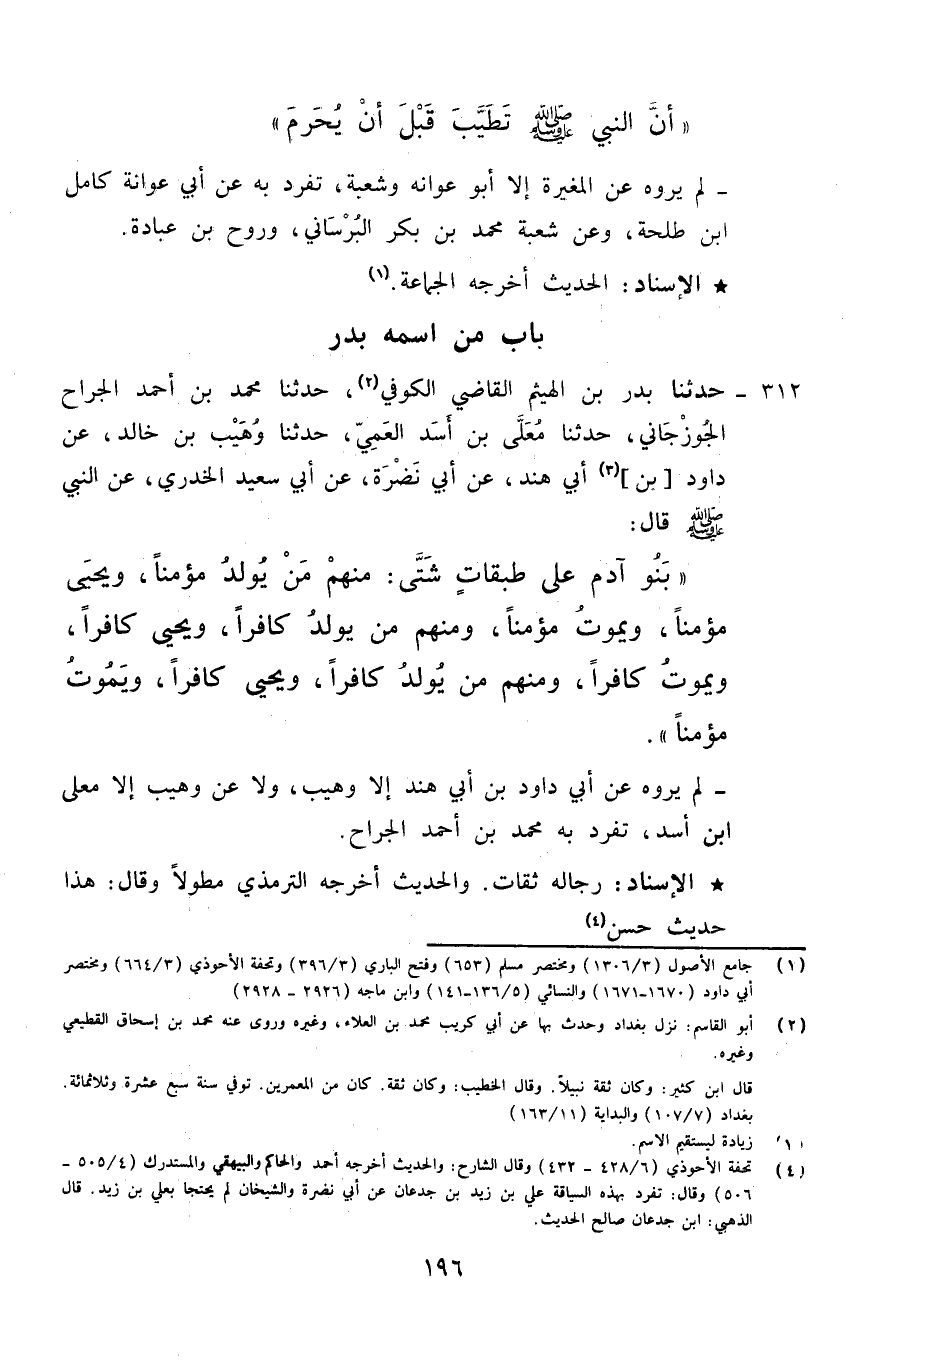 « أنَّ النبي ﷺ تَطَيَّبَ قَبْلَ أنْ يُحَرمَ »
ـ لم يروه عن المغيرة إلا أبو عوانه وشعبة، تفرد به عن أبي عوانة كامل
ابن طلحة، وعن شعبة محمد بن بكر البُرْسَاني، وروح بن عبادة.
★ الإسناد: الحديث أخرجه الجماعة.(١)
باب من اسمه بدر
٣١٢ ـ حدثنا بدر بن الهيثم القاضي الكوفي(٢)، حدثنا محمد بن أحمد الجراح
الجُوزْجَاني، حدثنا مُعَلَّى بن أَسَد العَمِيّ، حدثنا وُهَيْب بن خالد، عن
داود [بن](٣) أبي هند، عن أبي نَضْرَة، عن أبي سعيد الخدري، عن النبي
ﷺ قال:
« بَنُو آدم على طبقاتٍ شَتَّى: منهمْ مَنْ يُولدُ مؤمناً، ويحيَى
مؤمناً، ويموتُ مؤمناً، ومنهم من يولدُ كافراً، ويحيى كافراً،
ويموتُ كافراً، ومنهم من يُولدُ كافراً، ويحيى كافراً، ويَمُوتُ
مؤمناً ».
ـ لم يروه عن أبي داود بن أبي هند إلا وهيب، ولا عن وهيب إلا معلى
ابن أسد، تفرد به محمد بن أحمد الجراح.
★ الإسناد: رجاله ثقات. والحديث أخرجه الترمذي مطولاً وقال: هذا
حديث حسن(٤)
(١) جامع الأصول (١٣٠٦/٣) ومختصر مسلم (٦٥٣) وفتح الباري (٣٩٦/٣) وتحفة الأحوذي (٦٦٤/٣) ومختصر
أبي داود (١٦٧٠-١٦٧١) والنسائي (١٣٦/٥-١٤١) وابن ماجه (٢٩٢٦ - ٢٩٢٨)
(٢) أبو القاسم: نزل بغداد وحدث بها عن أبي كريب محمد بن العلاء، وغيره وروى عنه محمد بن إسحاق القطيعي
وغيره.
قال ابن كثير: وكان ثقة نبيلاً. وقال الخطيب: وكان ثقة. كان من المعمرين. توفي سنة سبع عشرة وثلاثمائة.
بغداد (١٠٧/٧) والبداية (١٦٣/١١)
زيادة ليستقيم الاسم.
(٤) تحفة الأحوذي (٤٢٨/٦ - ٤٣٢) وقال الشارح: والحديث أخرجه أحمد والحاكم والبيهقي والمستدرك (٥٠٥/٤ -
٥٠٦) وقال: تفرد بهذه السياقة علي بن زيد بن جدعان عن أبي نضرة والشيخان لم يحتجا بعلي بن زيد. قال
الذهبي: ابن جدعان صالح الحديث.
١٩٦